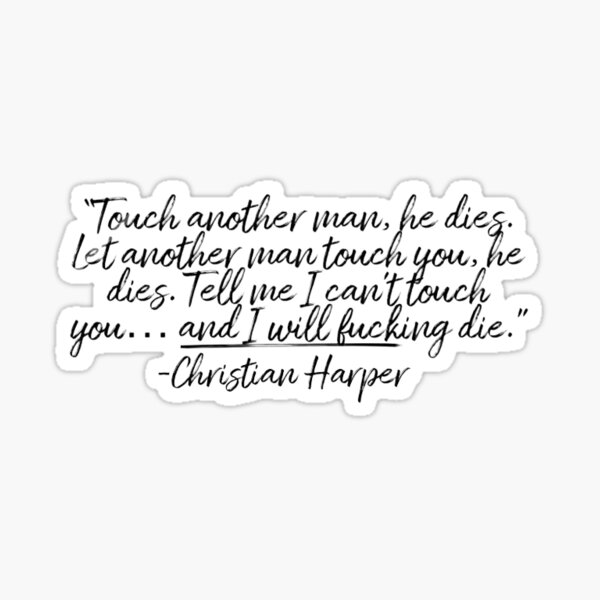 "Touch another man, he dies.
Let another man touch you, he
dies. Tell me I can't touch
you... and I will fucking die."
-Christian Harper